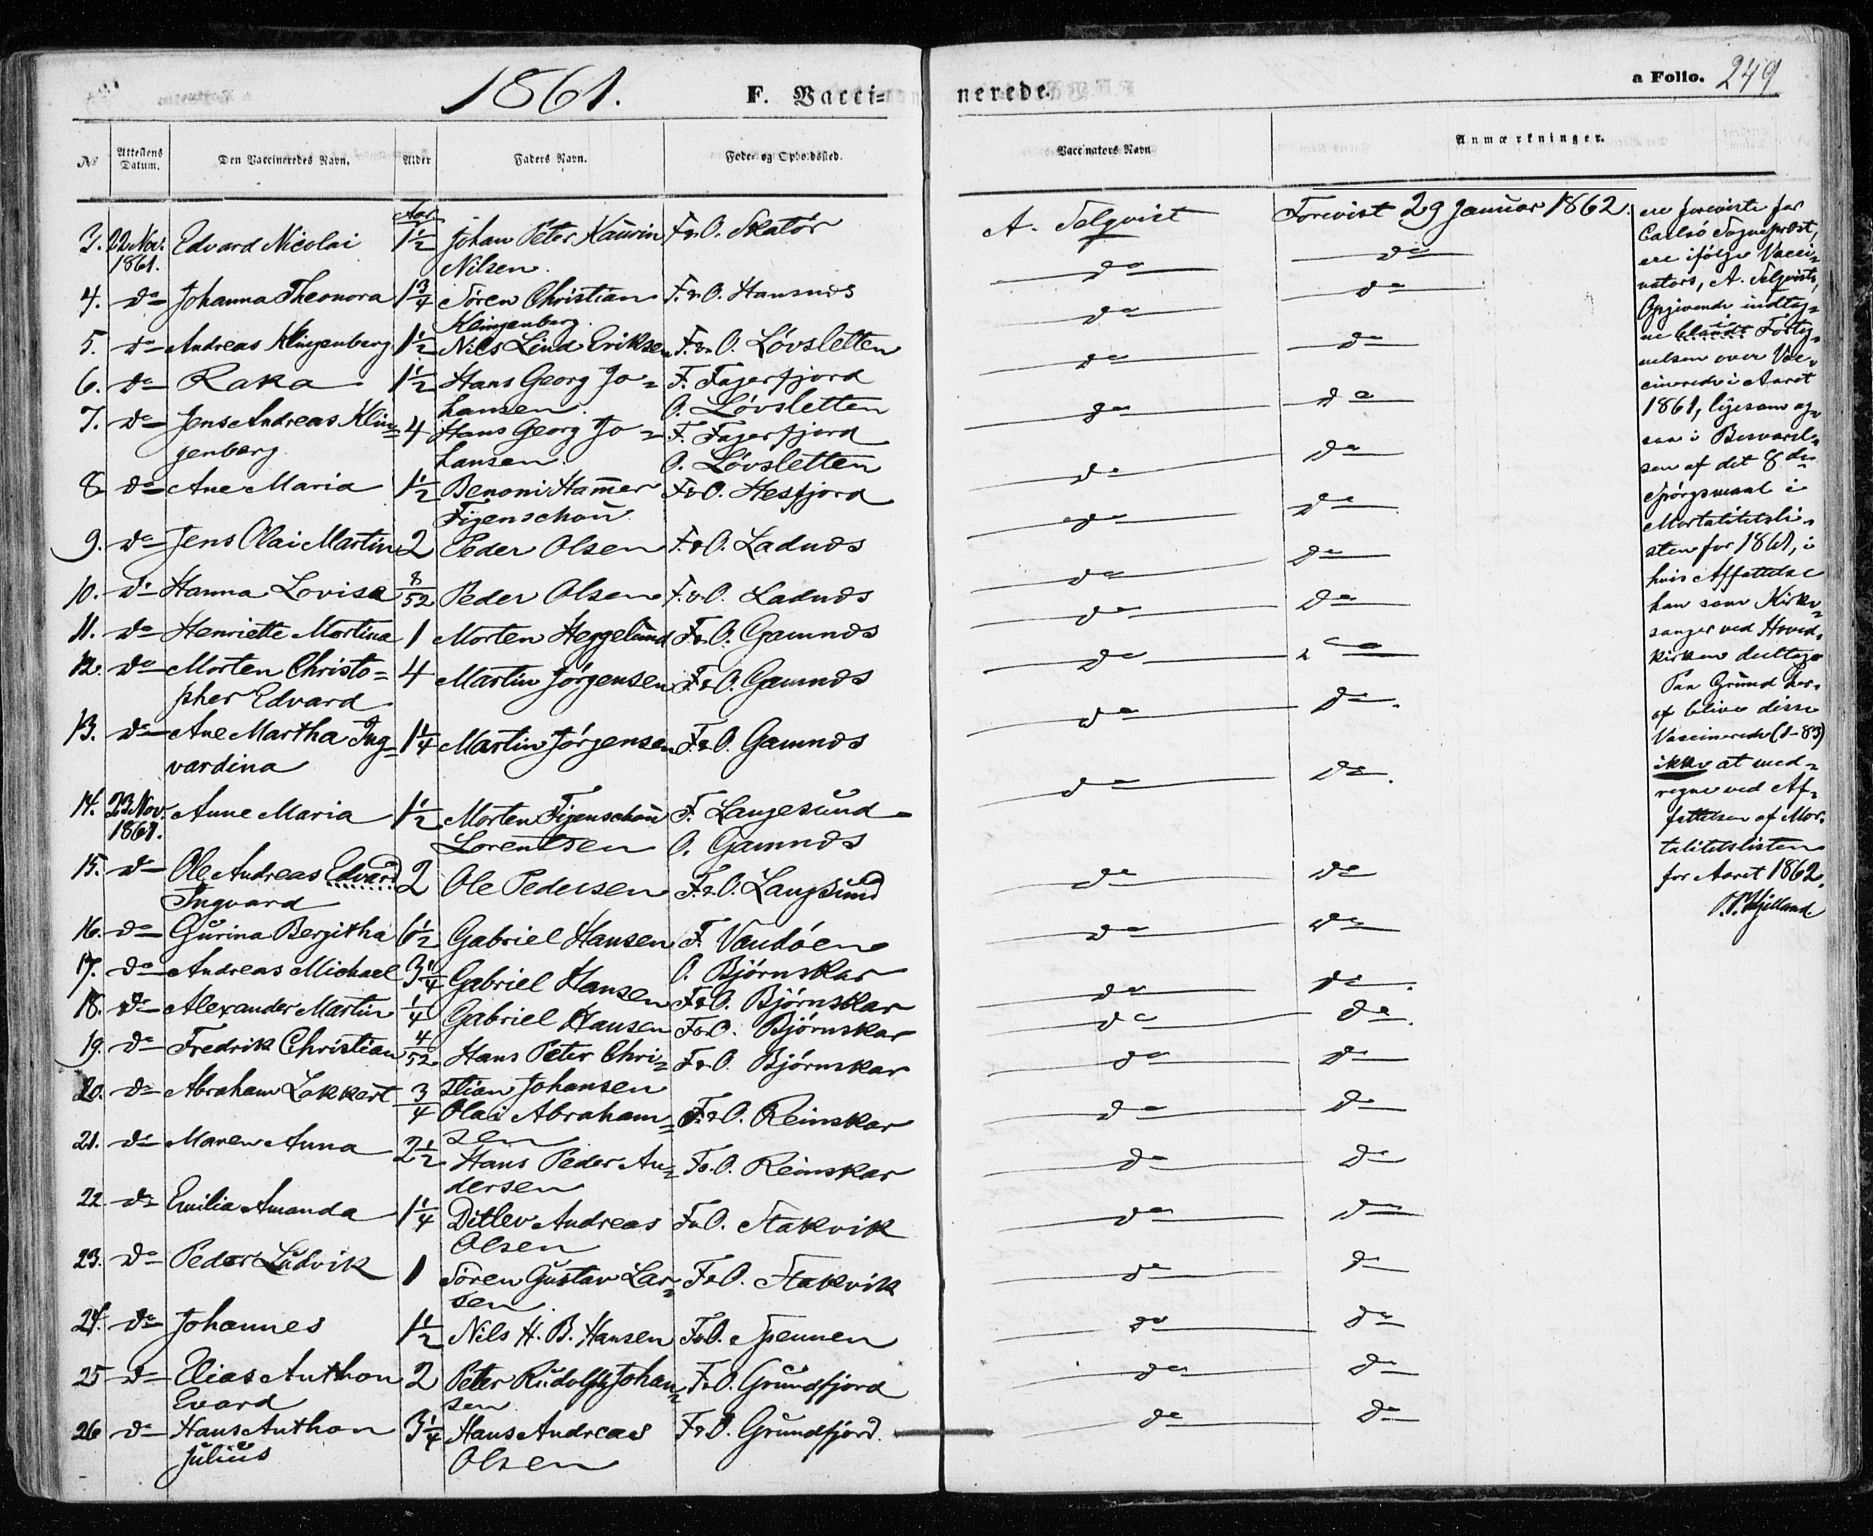 1861.
F. Vacci=
nerede.
a Folio. 249
No Attestens Datum. Den Vaccineredes Navn. Alder Faders Navn. Føde- og Opholdssted. Vaccinators Navn Anmærkninger.
Aar
3. 22 Nov. 1861. Edvard Nicolai 1 1/2 Johan Peter Kaurin Nilsen. F. & O. Skatør A. Selqvist Forevist 29 Januar 1862.
4. do Johanna Theonora 1 3/4 Søren Christian Klingenberg. F. & O. Hansnds do do
5. do Andreas Klingenberg 1 1/2 Nils Lind Eriksen F. & O. Løvsletten do do
6. do Raka 1 1/2 Hans Georg Jo=
hansen. F. Fagerfjord
O. Løvsletten do do
7. do Jens Andreas Klin=
genberg 4 Hans Georg Jo=
hansen. F. Fagerfjord
O. Løvsletten do do
8 do Ane Maria 1 1/2 Benoni Hamer
Figenschou F. & O. Hesfjord do do
9. do Jens Olai Martin 2 Peder Olsen F. & O. Ladnds do do
10. do Hanna Lovisa 8/52 Peder Olsen F. & O. Ladnds do do
11. do Henriette Martina 1 Morten Heggelund F. & O. Gamnds do do
12. do Morten Christo=
pher Edvard 4 Martin Jørgensen F. & O. Gamnds do do
13. do Ane Martha Ing=
vardina 1 1/4 Martin Jørgensen F. & O. Gamnds do do
14. 23 Nov. 1861. Anne Maria 1 1/2 Morten Figenschou
Lorentsen F. Langesund
O. Gamnds do do
15. do Ole Andreas Edvard
Ingvard 2 Ole Pedersen F. & O. Langsund do do
16. do Gurina Bergitha 6 1/2 Gabriel Hansen F. Vandøen
O. Bjørnskar do do
17. do Andreas Michael 3 1/4 Gabriel Hansen F. & O. Bjørnskar do do
18. do Alexander Martin 1/4 Gabriel Hansen F. & O. Bjørnskar do do
19. do Fredrik Christian 4/52 Hans Peter Chri=
stian Johansen F. & O. Bjørnskar do do
20. do Abraham Lokkert 3/4 Olai Abraham=
sen F. & O. Reinskar do do
21. do Maren Anna 2 1/2 Hans Peder An=
dersen F. & O. Reinskar do do
22 do Emilia Amanda 1 1/4 Ditlev Andreas
Olsen F. & O. Stakvik do do
23. do Peder Ludvik 1 Søren Gustav Lar=
sen F. & O. Stakvik do do
24. do Johannes 1 1/2 Nils H. B. Hansen F. & O. Spennen do do
25 do Elias Anthon
Evard 2 Peter Rudolph Johan=
sen F. & O. Grundfjord do do
26 do Hans Anthon
Julius 3 1/4 Hans Andreas
Olsen F. & O. Grundfjord. do do
ere foreviste for
Carlsø Sogneprest,
ere ifølge Vacci=
nators, A. Selqvists,
Opgivende indtag=
ne blandt Forteg=
nelsen over Vac=
cinerede i Aaret
1861, ligesom og=
saa i Besvarel=
sen af det 8de
Spørgsmaal i
Mortalitetsli=
sten for 1861, i
hvis Affattelse
han som Kirke=
sanger ved Hoved=
kirken deeltog.
Paa Grund her=
af blive disse
Vaccinerede (1-83)
ikke at med=
regne ved Af=
fattelsen af Mor=
talitetslisten
for Aaret 1862.